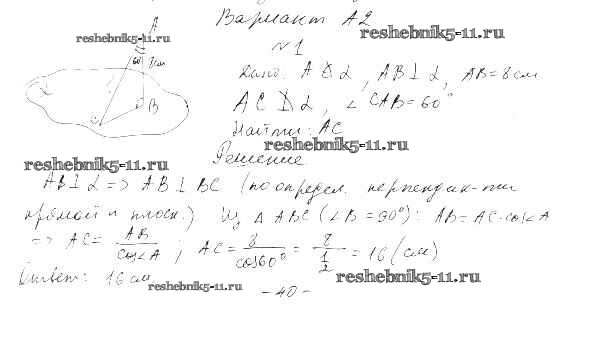 Вариант А2
reshebnik5-11.ru
reshebnik5-11.ru
№1
А
60° 8см
В
С
α
Дано: А ∉ α, АВ ⊥ α, АВ = 8 см
АС ⊥̸ α, ∠ САВ = 60°
Найти: АС
reshebnik5-11.ru
Решение
reshebnik5-11.ru
АВ ⊥ α => АВ ⊥ ВС (по определ. перпендик-ти
прямой и плоск.) Из Δ АВС (∠В = 90°): АВ = АС·cos∠A
=> АС = АВ/cos∠A ; АС = 8/cos60° = 8/(1/2) = 16 (см)
Ответ: 16 см
reshebnik5-11.ru
reshebnik5-11.ru
- 40 -